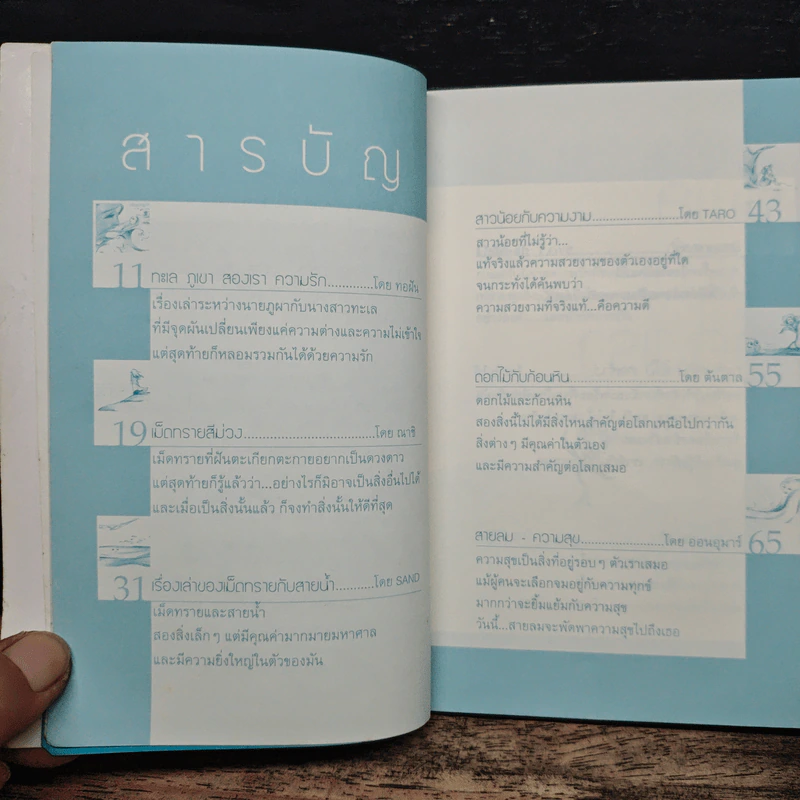 สารบัญ
11 ทะเล ภูเขา สองเรา ความรัก............โดย ทอฝัน
เรื่องเล่าระหว่างนายภูผากับนางสาวทะเล
ที่มีจุดผันเปลี่ยนเพียงแค่ความต่างและความไม่เข้าใจ
แต่สุดท้ายก็หลอมรวมกันได้ด้วยความรัก
19 เม็ดทรายสีม่วง.................................โดย ณาชิ
เม็ดทรายที่ฝันตะเกียกตะกายอยากเป็นดวงดาว
แต่สุดท้ายก็รู้แล้วว่า...อย่างไรก็มิอาจเป็นสิ่งอื่นไปได้
และเมื่อเป็นสิ่งนั้นแล้ว ก็จงทำสิ่งนั้นให้ดีที่สุด
31 เรื่องเล่าของเม็ดทรายกับสายน้ำ..........โดย SAND
เม็ดทรายและสายน้ำ
สองสิ่งเล็กๆ แต่มีคุณค่ามากมายมหาศาล
และมีความยิ่งใหญ่ในตัวของมัน
สาวน้อยกับความงาม......................โดย TARO 43
สาวน้อยที่ไม่รู้ว่า...
แท้จริงแล้วความสวยงามของตัวเองอยู่ที่ใด
จนกระทั่งได้ค้นพบว่า
ความสวยงามที่จริงแท้...คือความดี
ดอกไม้กับก้อนหิน............................โดย ต้นตาล 55
ดอกไม้และก้อนหิน
สองสิ่งนี้ไม่ได้มีสิ่งไหนสำคัญต่อโลกเหนือไปกว่ากัน
สิ่งต่างๆ มีคุณค่าในตัวเอง
และมีความสำคัญต่อโลกเสมอ
สายลม - ความสุข.....................โดย ออนอุมาร์ 65
ความสุขเป็นสิ่งที่อยู่รอบๆ ตัวเราเสมอ
แม้ผู้คนจะเลือกจมอยู่กับความทุกข์
มากกว่าจะยิ้มแย้มกับความสุข
วันนี้...สายลมจะพัดพาความสุขไปถึงเธอ